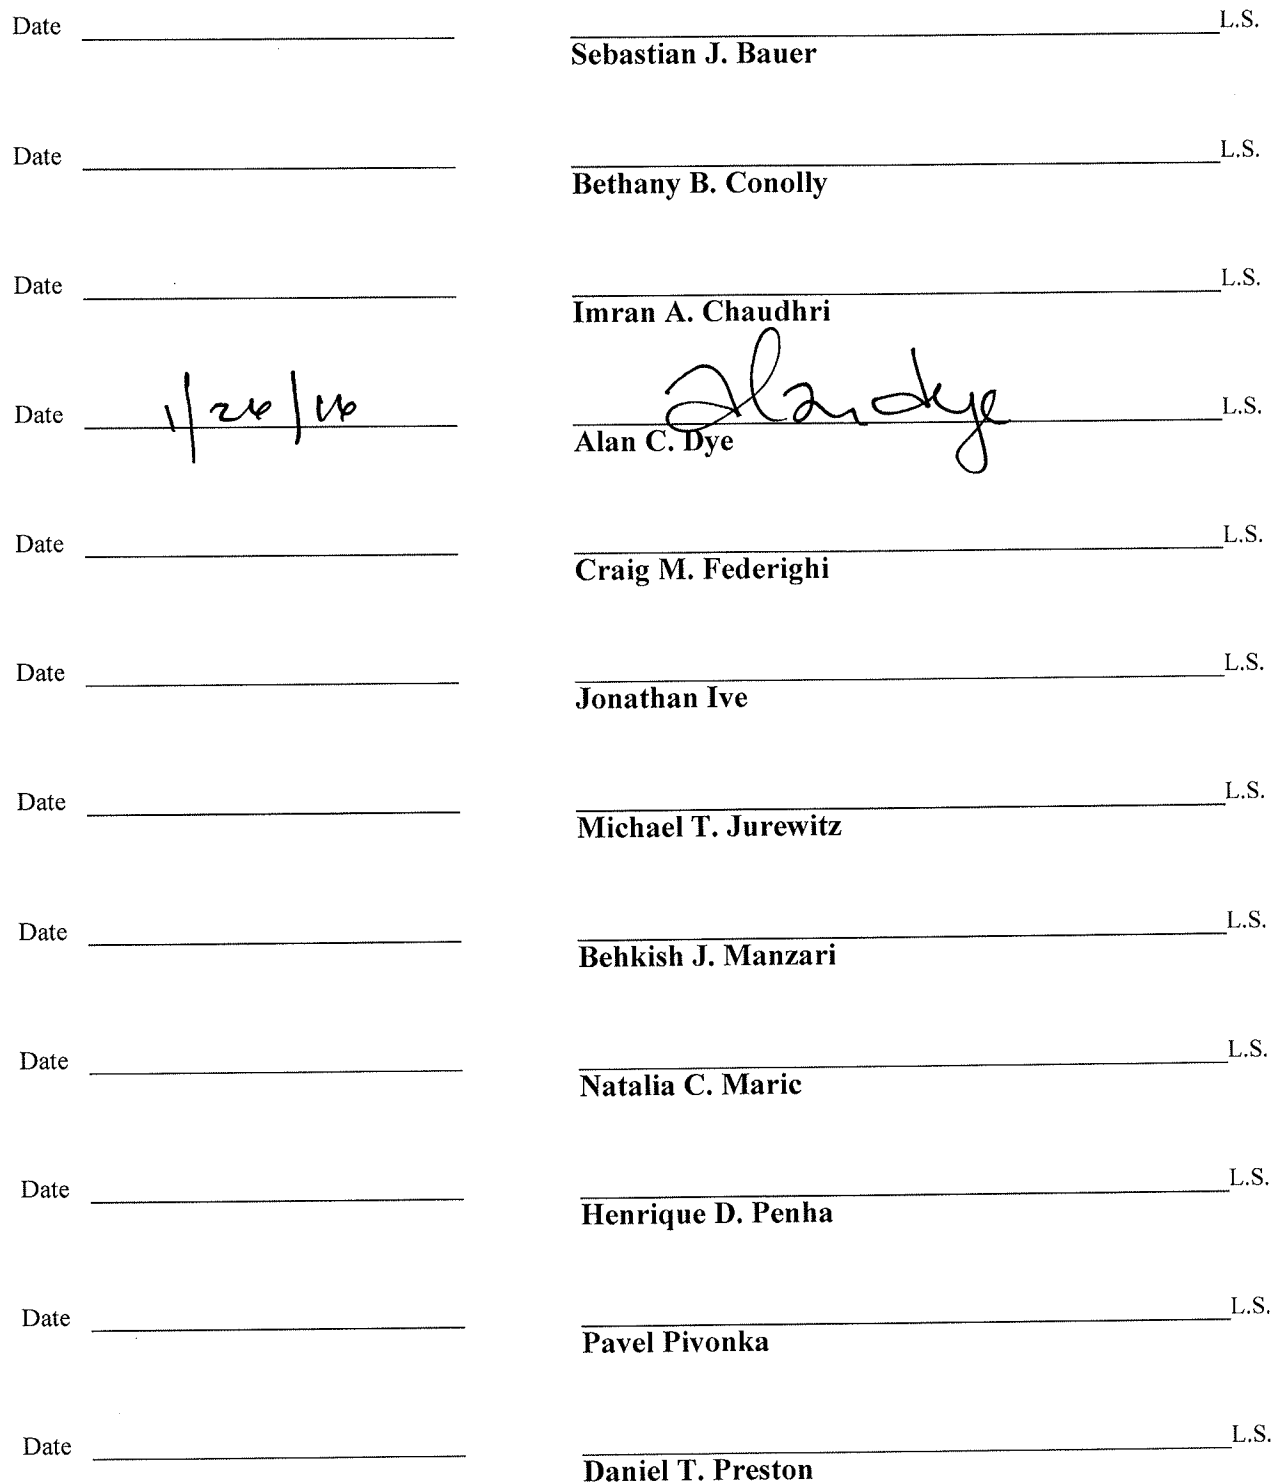 Date L.S.
Sebastian J. Bauer
Date L.S.
Bethany B. Conolly
Date L.S.
Imran A. Chaudhri
Date 1/26/16 alan dye L.S.
Alan C. Dye
Date L.S.
Craig M. Federighi
Date L.S.
Jonathan Ive
Date L.S.
Michael T. Jurewitz
Date L.S.
Behkish J. Manzari
Date L.S.
Natalia C. Maric
Date L.S.
Henrique D. Penha
Date L.S.
Pavel Pivonka
Date L.S.
Daniel T. Preston